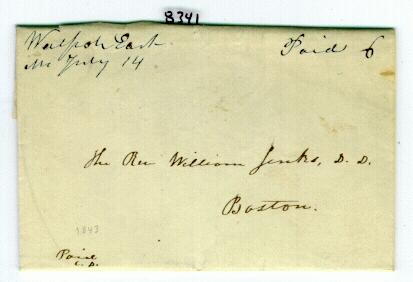 8341
Walpole East
Ms July 14
Paid 6
The Rev William Jenks, D. D.
Boston.
1843
Paid